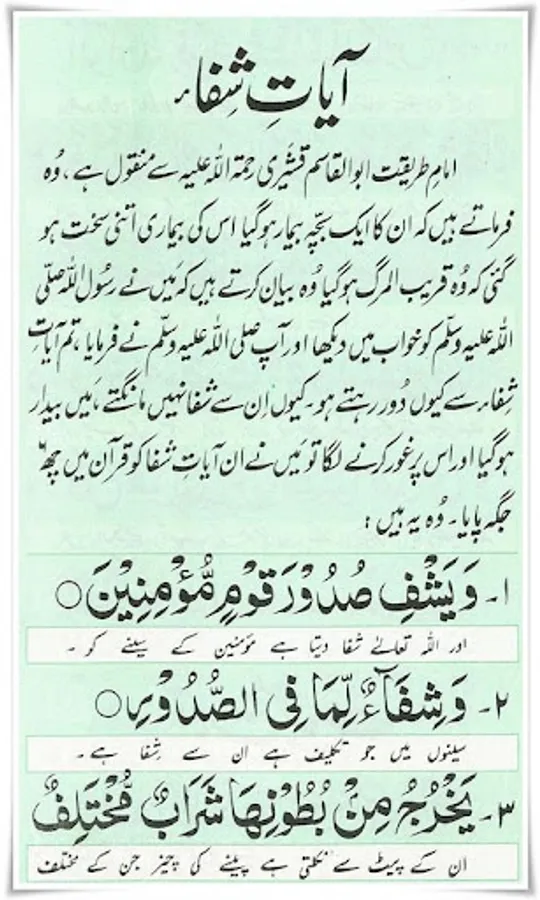 آیاتِ شِفاء
امامِ طریقت ابوالقاسم قشیری رحمۃ اللہ علیہ سے منقول ہے، وُہ
فرماتے ہیں کہ ان کا ایک بچّہ بیمار ہوگیا اس کی بیماری اتنی سخت ہو
گئی کہ وُہ قریب المرگ ہوگیا وُہ بیان کرتے ہیں کہ مَیں نے رسُول اللہ صلّی
اللہ علیہ وسلّم کو خواب میں دیکھا اور آپ صلی اللہ علیہ وسلّم نے فرمایا، تم آیاتِ
شِفاء سے کیوں دُور رہتے ہو۔ کیوں اِن سے شفا نہیں مانگتے، مَیں بیدار
ہوگیا اور اس پر غور کرنے لگا تو مَیں نے ان آیاتِ شفا کو قرآن میں چھ
جگہ پایا۔ وُہ یہ ہیں :
۱۔ وَيَشْفِ صُدُوْرَ قَوْمٍ مُّؤْمِنِيْنَ ○
اور اللہ تعالےٰ شفا دیتا ہے مؤمنین کے سینے کو ۔
۲۔ وَشِفَآءٌ لِّمَا فِى الصُّدُوْرِ ○
سینوں میں جو تکلیف ہے ان سے شِفا ہے۔
۳۔ يَخْرُجُ مِنْ بُطُوْنِهَا شَرَابٌ مُّخْتَلِفٌ
ان کے پیٹ سے نکلتی ہے پینے کی چیز جن کے مختلف